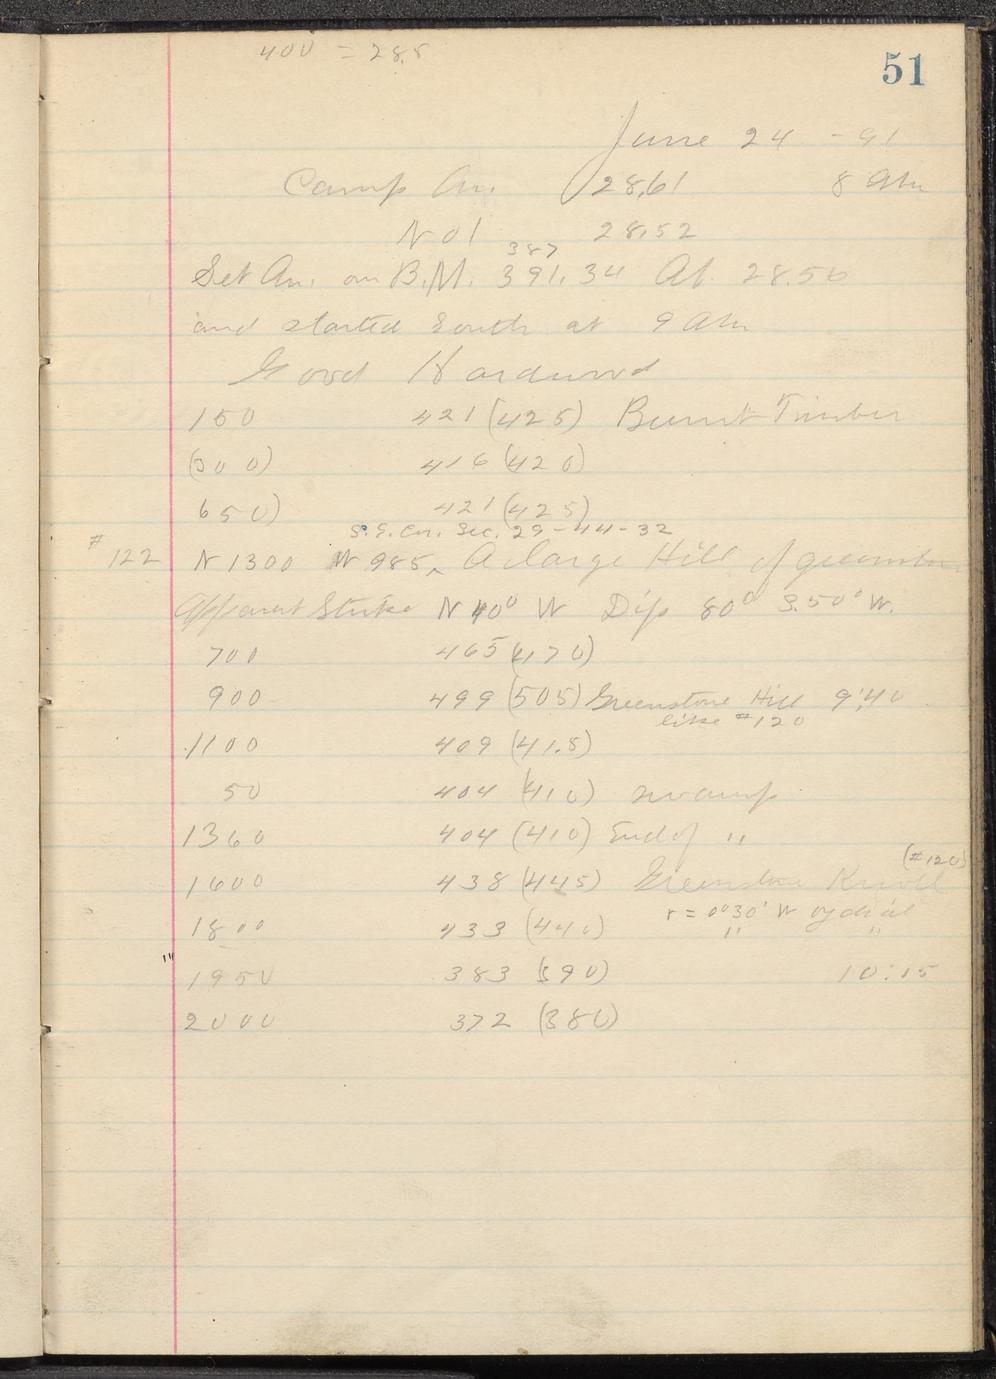 400 = 28.5
51
June 24 - 91
Camp An. 28.61 8 Am
No 1 28.52
387
Set An. on B.M. 391.34 At 28.56
and started South at 9 Am
Good Hardwood
150 421 (425) Burnt Timber
(300) 416 (420)
650) 421 (425)
S.E. Cor. Sec. 29-44-32
# 122 N 1300 W 985 ^ A large Hill of greenstone
Apparent Strike N 40° W Dip 80° S. 50° W.
700 465 (470)
900 499 (505) Greenstone Hill 9:40
like #120
1100 409 (41.5)
50 404 (410) swamp
1360 404 (410) End of "
(#120)
1600 438 (445) Greenstone Knoll
r = 0°30' W by dial
1800 433 (440) " "
" 1950 383 (390) 10:15
2000 372 (380)